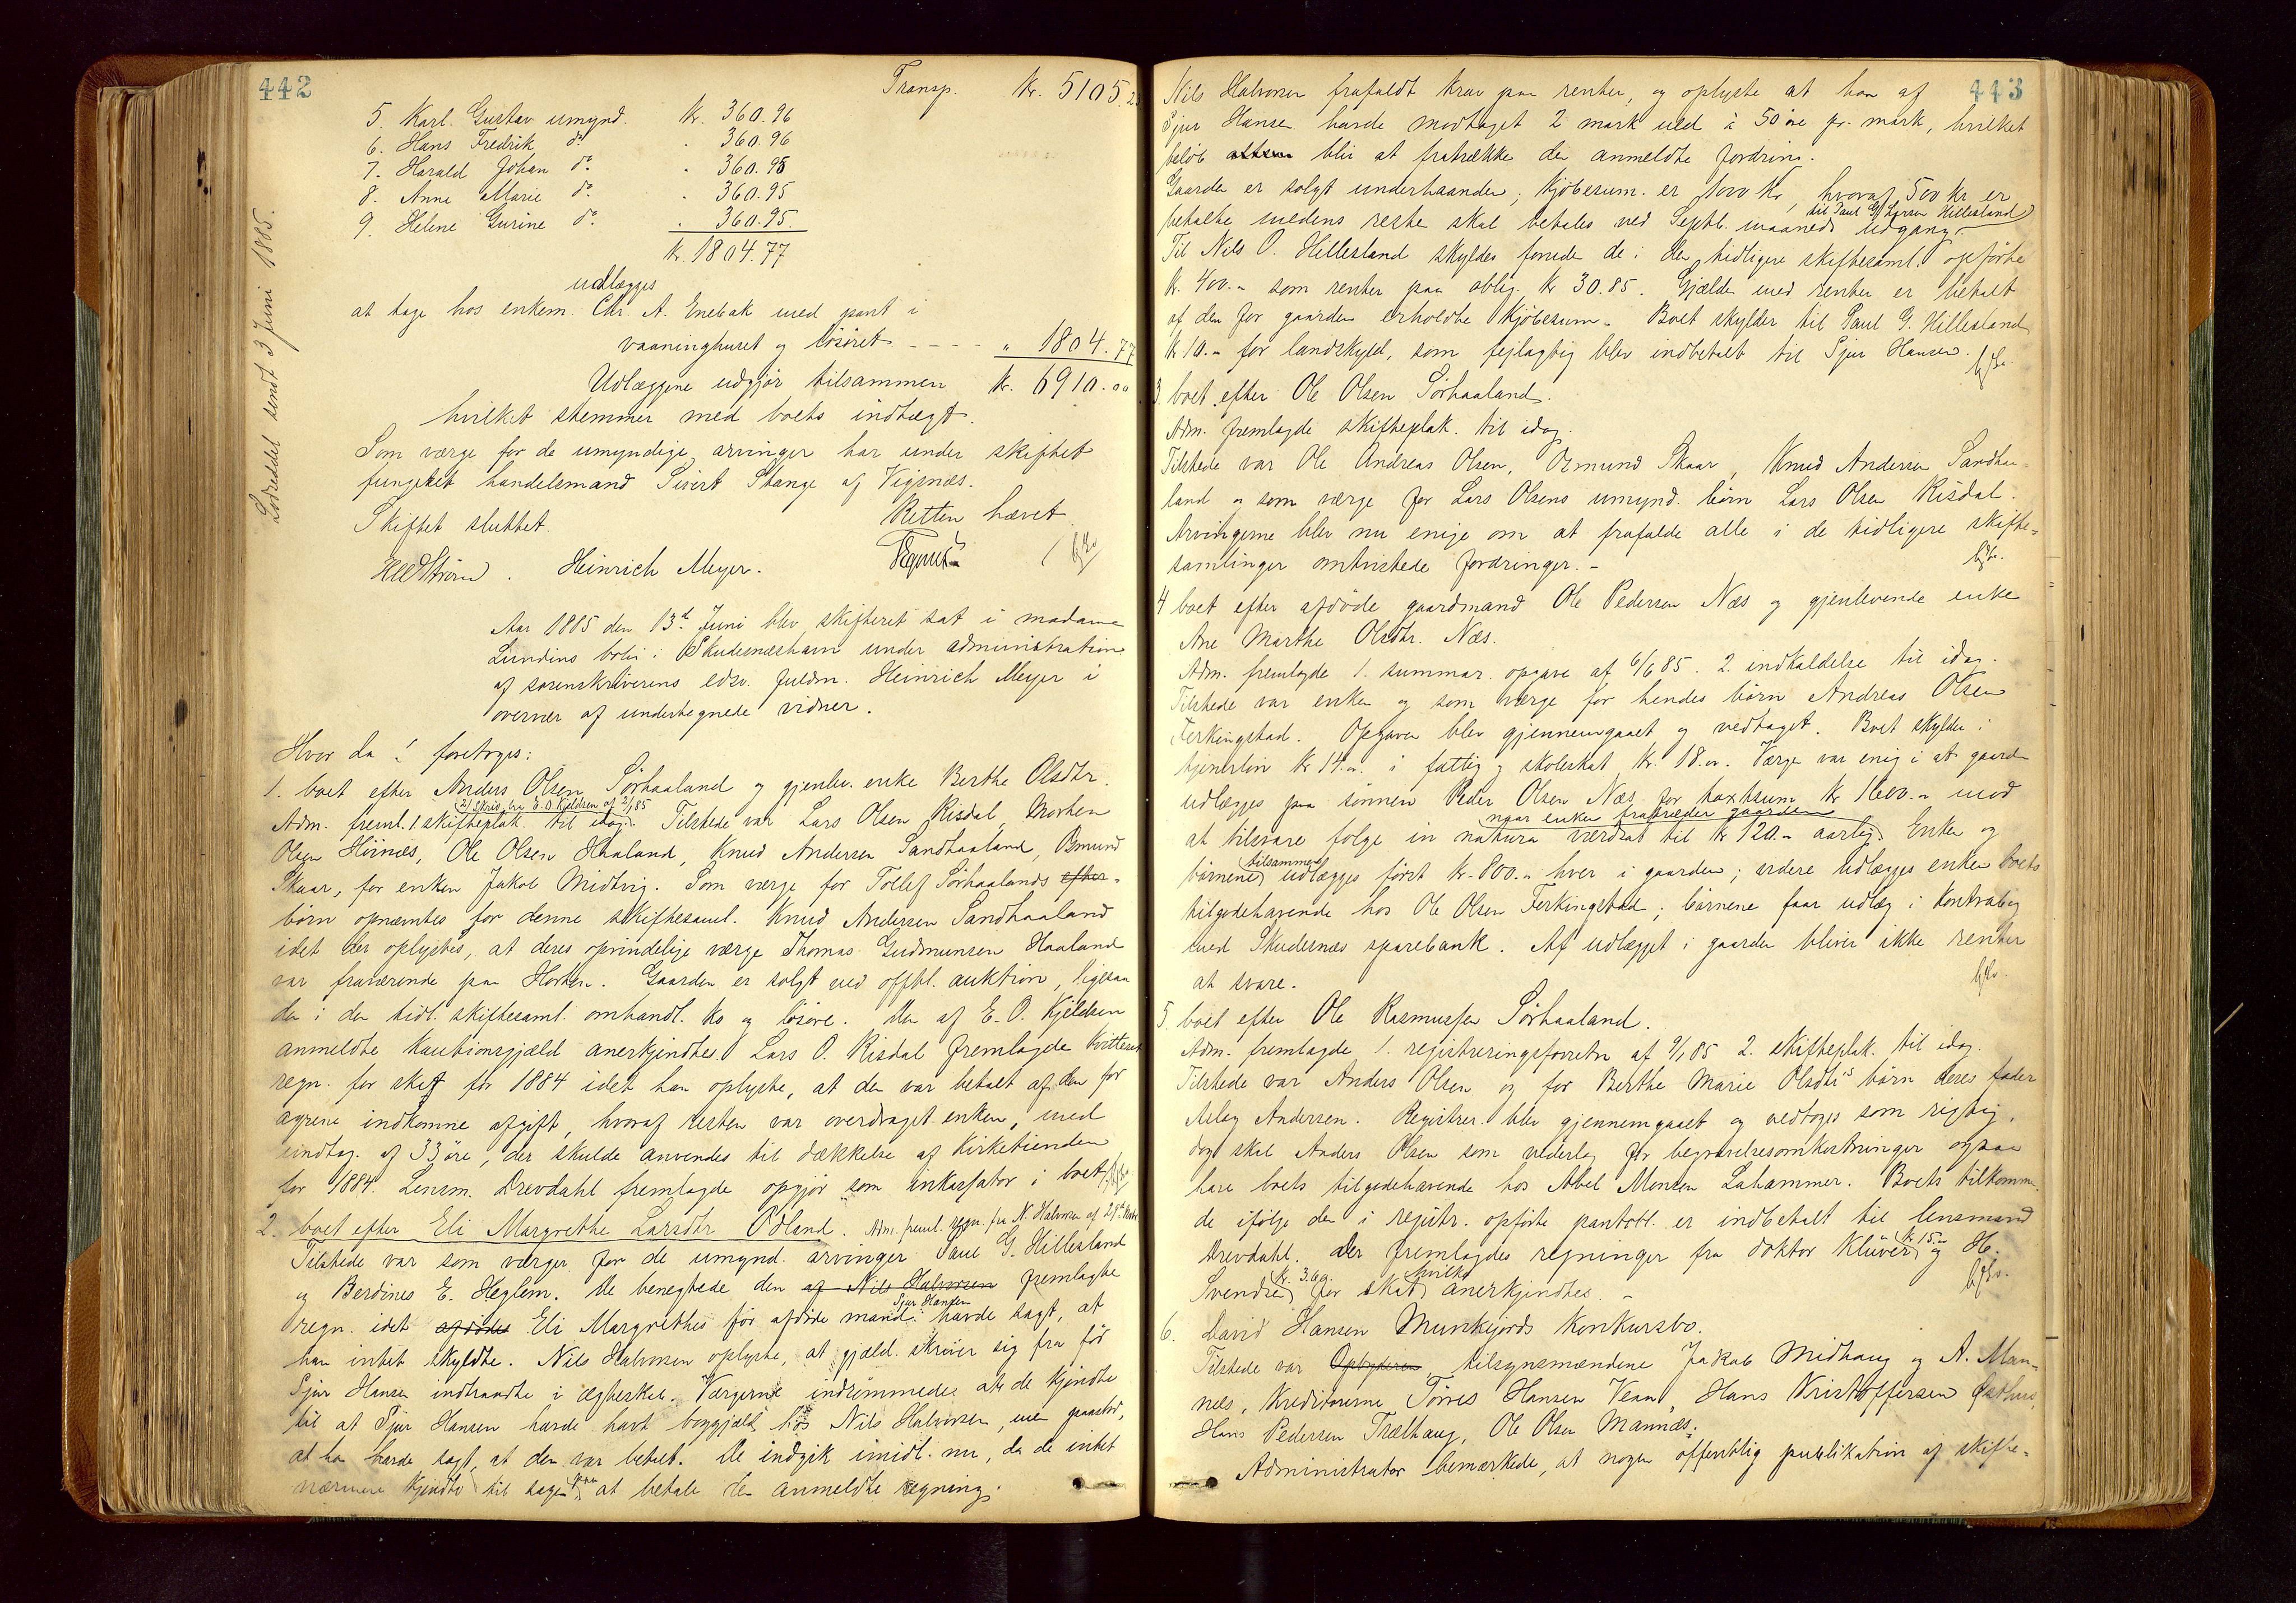 442
Transp. Kr. 5105.23
5. Karl Gustav umynd. Kr. 360.96
6. Hans Fredrik do " 360.96
7. Harald Johan do " 360.95
8. Anne Marie do " 360.95
9. Helene Gurine do " 360.95
Kr. 1804.77
udlægges
at tage hos enkem. Chr. A. Enebak med pant i
vaaninghuset og løsøret - - - - " 1804.77
Udlæggene udgjør tilsammen Kr. 6910.00
hvilket stemmer med boets indtægt.
Som værge for de umyndige arvinger har under skiftet
fungeret handelsmand Sivert Stange af Vigsnæs.
Skiftet sluttet. Retten hævet.
Heinrich Meyer.
Lodseddel sendt 3 Juni 1885.
Aar 1885 den 13de Juni blev skifteret sat i madame
Lundins bolig i Skudesnæshavn under administration
af sorenskriverens edsv. fuldm. Heinrich Meyer i
overvær af undertegnede vidner.
Hvor da! foretoges:
1. boet efter Anders Olsen Sørhaaland og gjenlev. enke Berthe Olsdtr.
2) skriv. fra E. O. Kjeldsen af 2/1 85
Adm. freml. 1. skifteplak. til idag. Tilstede var Lars Olsen Risdal, Morten
Olsen Hiinæs, Ole Olsen Haaland, Knud Andersen Sandhaaland, Osmund
Skaar, for enken Jakob Midtvig. Som værge for Tollef Sørhaalands efter-
børn opnævntes for denne skiftesaml. Knud Andersen Sandhaaland
idet der oplystes, at deres oprindelige værge Thomas Gudmunsen Haaland
var fraværende paa Havsen. Gaarden er solgt ved offtl. auktion, ligesaa
den i den tidl. skiftesaml. omhandl. ko og løsøre. Den af E. O. Kjeldsen
anmeldte kautionsgjæld anerkjendtes. Lars O. Risdal fremlagde kvitteret
regn. for skat for 1884 idet han oplyste, at den var betalt af den for
agrene indkomne afgift, hvoraf resten var overdraget enken, med
undtag. af 33 øre, der skulde anvendes til dækkelse af kirketienden
for 1884. Lensm. Drevdahl fremlagde opgjør som inkassator i boet.
2. boet efter Eli Margrethe Larsdtr Ødland. Adm. freml. regn. fra N. Halvorsen af 28de
Tilstede var som værger for de umynd. arvinger Paul G. Hillesland
og Berdines E. Heglem. De benegtede den af Nils Halvorsen fremlagte
Sjur Hansen
regn. idet afdødes Eli Margrethes før afdøde mand havde sagt, at
han intet skyldte. Nils Halvorsen oplyste, at gjæld. skriver sig fra før
Sjur Hansen indtraadte i ægteskab. Værgerne indrømmede, at de kjendte
til at Sjur Hansen havde havt boggjæld hos Nils Halvorsen, men paastod,
at han havde sagt, at den var betalt. De indgik imidl. nu, da de intet
nærmere kjendte til sagen paa at betale den anmeldte regning.
443
Nils Halvorsen frafaldt krav paa renter, og oplyste at han af
Sjur Hansen havde modtaget 2 mark uld à 50 øre pr. mark, hvilket
beløb altsaa blir at fratrække den anmeldte fordring.
Gaarden er solgt underhaanden; kjøbesum. er 1000 kr, hvoraf 500 kr er
til Paul G. Larsen Hillesland
betalte medens reste skal betales ved Septb. maaneds udgang.
Til Nils O. Hillesland skyldes foruden de i den tidligere skiftesaml. opførte
kr. 400.- som renter paa oblig. kr 30.85. Gjælden med renter er betalt
af den for gaarden erholdte kjøbesum. Boet skylder til Paul G. Hillesland
kr 10.- for landskyld, som fejlagtig blev indbetalt til Sjur Hansen.
3. boet efter Ole Olsen Sørhaaland.
Adm. fremlagde skifteplak. til idag.
Tilstede var Ole Andreas Olsen, Osmund Skaar, Knud Andersen Sandhaa-
land og som værge for Lars Olsens umynd. børn Lars Olsen Risdal.
Arvingerne blev nu enige om at frafalde alle i de tidligere skifte-
samlinger omtvistede fordringer.-
4 boet efter afdøde gaardmand Ole Pedersen Næs og gjenlevende enke
Ane Marthe Olsdtr. Næs.
Adm. fremlagde 1. summar. opgave af 6/6 85. 2. indkaldelse til idag.
Tilstede var enken og som værge for hendes børn Andreas Olsen
Ferkingstad. Opgaven blev gjennemgaaet og vedtaget. Boet skylder i
tjenerløn kr 14.- i fattig og skoleskat kr. 18.-. Værge var enig i at gaarden
udlægges paa sønnen Peder Olsen Næs for taxtsum kr 1600.- mod
naar enken fratræder gaarden
at tilsvare følge in natura værdsat til kr 120.- aarlig. Enken og
tilsammen
børnene udlægges først kr. 800.- hver i gaarden; videre udlægges enken boets
tilgodehavende hos Ole Olsen Ferkingstad; børnene faar udlæg i kontrabog
med Skudesnæs sparebank. Af udlægget i gaarden bliver ikke renter
at svare.
5. boet efter Ole Rasmussen Sørhaaland.
Adm. fremlagde 1. registreringsforretn af 9/1 85 2. skifteplak. til idag.
Tilstede var Anders Olsen og for Berthe Marie Olsdtrs børn deres fader
Aslag Andersen. Registrer. blev gjennemgaaet og vedtoges som rigtig,
dog skal Anders Olsen som vederlag for begravelsesomkostninger ogsaa
have boets tilgodehavende hos Abel Monsen Lahammer. Boets tilkommen-
de ifølge den i registr. opførte pantobl. er indbetalt til lensmand
Drevdahl. Der fremlagdes regninger fra doktor Klüver kr 15.- og H.
Svendsen kr. 3.60 for skat hvilke anerkjendtes.-
6. David Hansen Munkejords konkursbo.
Tilstede var Opbyderen, tilsynsmændene Jakob Midhaug og A. Man-
næs, kreditorerne Tørres Hansen Vean, Hans Kristoffersen
Hans Pedersen Trælhaug, Ole Olsen Mannæs.
Administrator bemærkede, at nogen offentlig publikation af skifte-